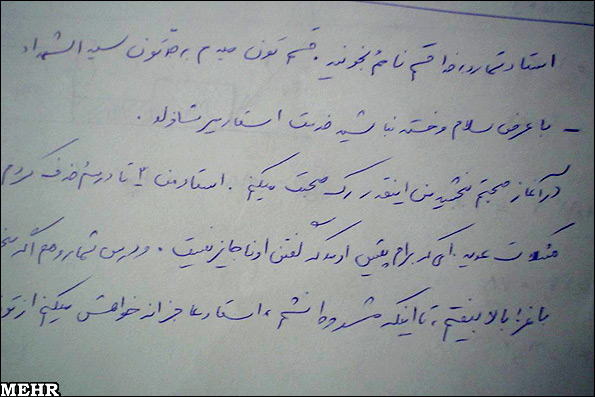 استاد شما رو به خدا قسم نامه مو بخونید. قسم تون میدم به جدتون سید الشهداء
- با عرض سلام و خسته نباشید خدمت استاد میرشاولد.
در آغاز صحبتم ببخشید من اینقدر رک صحبت میکنم. استاد من ۲ تا درسمو حذف کردم
مشکلات عدیده ای که برام پیش اومد که گفتن اونا جایز نیست. و درس شما رو هم اگه
با نمره بالا بیفتم، تا اینکه مشروط نشم، استاد عاجزانه خواهش میکنم از تو
MEHR